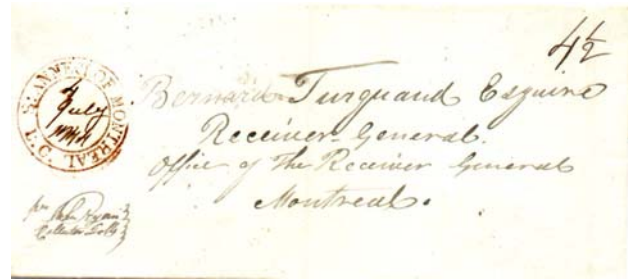 4½
ST. ANNES OF MONTREAL L.C.
4
July
Bernard Turquand Esquire
Receiver-General.
Office of The Receiver General
Montreal.
John Ryan
Collector Tolls